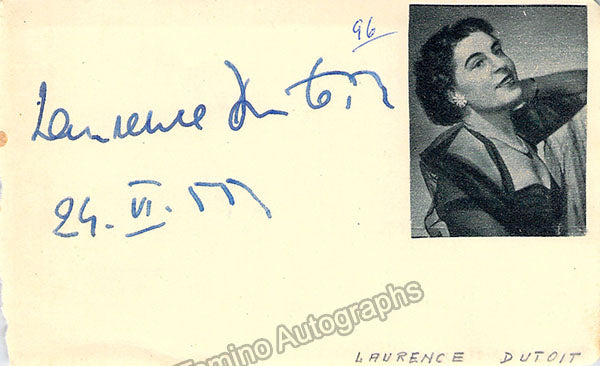 96
Laurence Dutoit
24. VI.
Tamino Autographs
LAURENCE DUTOIT